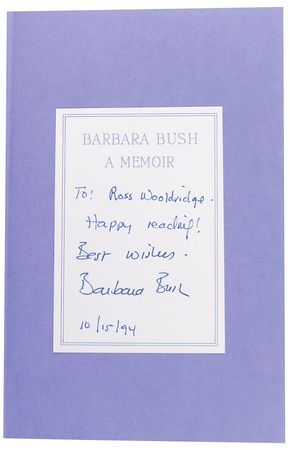 BARBARA BUSH
A MEMOIR
To: Ross Wooldridge.
Happy reading!
Best wishes -
Barbara Bush
10/15/94